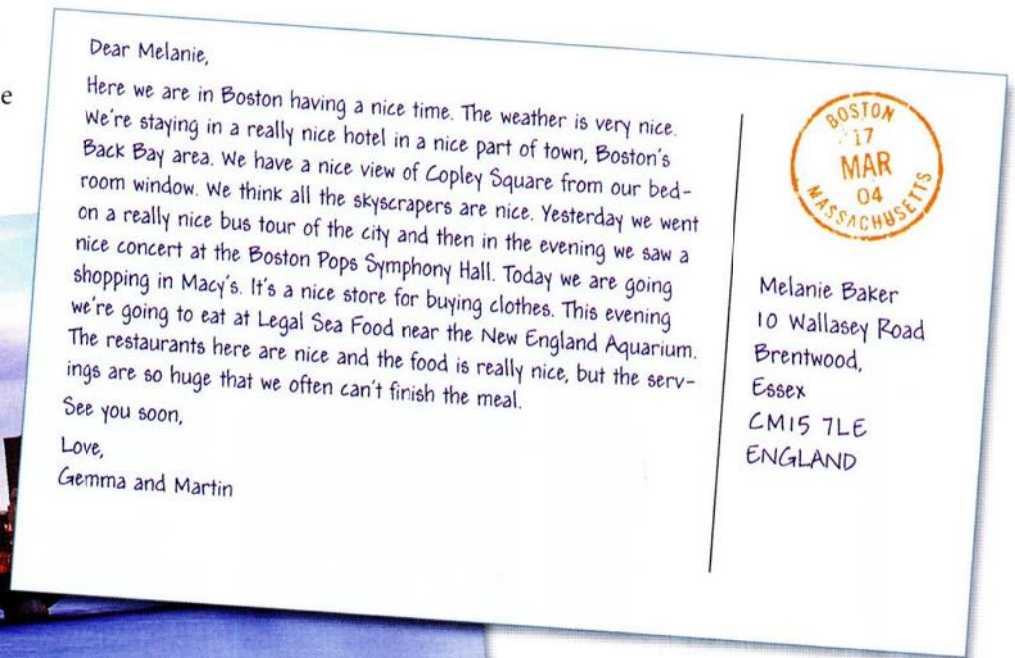 e
Dear Melanie,
Here we are in Boston having a nice time. The weather is very nice.
We're staying in a really nice hotel in a nice part of town, Boston's
Back Bay area. We have a nice view of Copley Square from our bed-
room window. We think all the skyscrapers are nice. Yesterday we went
on a really nice bus tour of the city and then in the evening we saw a
nice concert at the Boston Pops Symphony Hall. Today we are going
shopping in Macy's. It's a nice store for buying clothes. This evening
we're going to eat at Legal Sea Food near the New England Aquarium.
The restaurants here are nice and the food is really nice, but the serv-
ings are so huge that we often can't finish the meal.
See you soon,
Love,
Gemma and Martin
BOSTON
17
MAR
04
MASSACHUSETTS
Melanie Baker
10 Wallasey Road
Brentwood,
Essex
CM15 7LE
ENGLAND